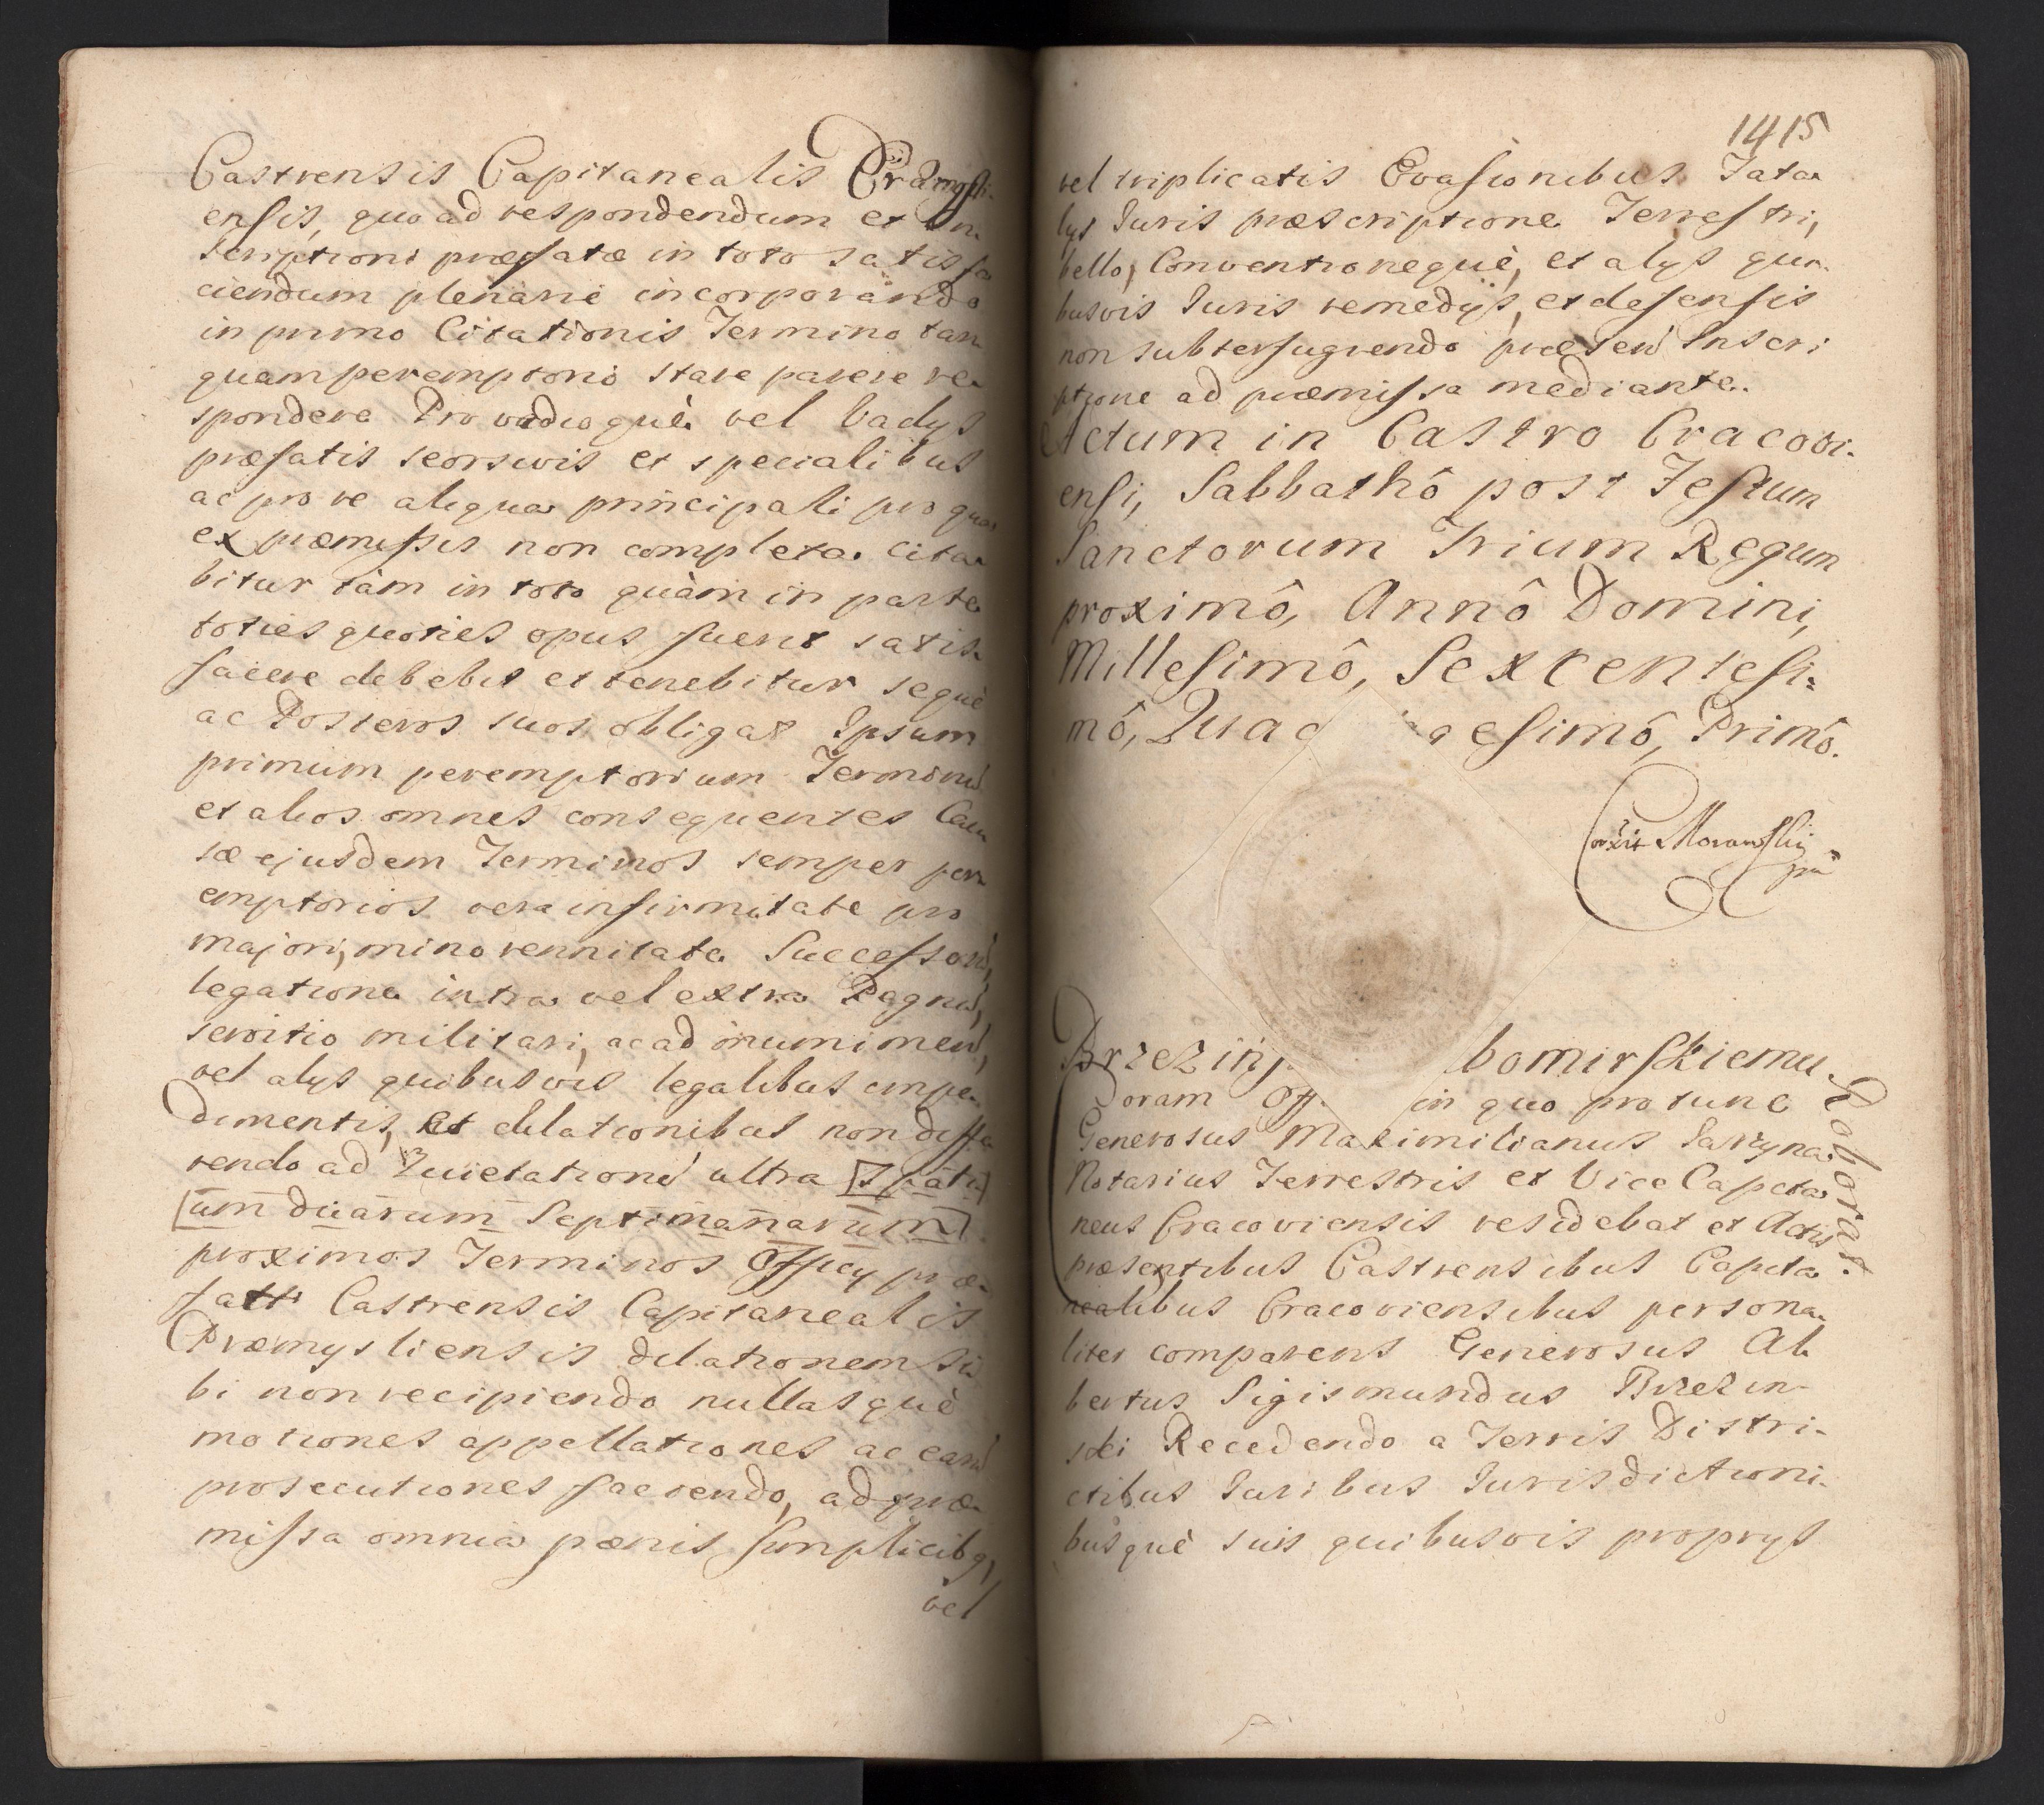 Castrensis Capitanealis Præmysli-
ensis, quo ad respondendum et In-
scriptioni præfatæ in toto satisfa
ciendum plenariè incorporando
in primo Citationis Termino tan
quam peremptorio stare parere re-
spondere Pro vadioquè vel Vadys
præfatis seorsivis et specialibus
ac pro re aliqua principali pro qua
ex præmissis non completa cita-
bitur tàm in toto quàm in parte
toties quoties opus fuerit satis-
facere debebit et tenebitur sequè
ac Posteros suos obligat Ipsum
primum peremptorium Terminũ
et alios omnes consequentes Cau
sæ ejusdem Terminos semper per-
emptorios vera infirmitate pro
majori, minorennitate Successorũ,
legatione intra vel extra Regnũ,
servitio militari, ac ad munimen,
vel alys quibusvis legalibus impe-
dimentis, et dilationibus non diffe
rendo ad Quietationẽ ultra [spati]
[um duarum Septimanarum]
proximos Terminos Officy præ-
fati Castrensis Capitanealis
Præmysliensis dilationem si
bi non recipiendo nullasquè
motiones appellationes ac earũ
prosecutiones faciendo, ad præ-
missa omnia pœnis simplicibq,
vel
1415
vel triplicatis Evasionibus Fata-
lys Juris præscriptione Terrestri,
bello, Conventionequè, et alys qui-
busvis Juris remedijs, et defensis
non subterfugiendo præsen Inscri
ptione ad præmissa mediante.
Actum in Castro Cracovi-
ensi, Sabbathô post Festum
Sanctorum Trium Regum
proximô, Annô Domini,
Millesimô, Sexcentesi-
mô, Quad gesimô, Primô.
Corrxit Morawski
mp
Brzezins bomirskiemu
Roborat.
Coram Off. in quo pro tunc
Generosus Maximilianus Jarzyna
Notarius Terrestris et Vice Capita
neus Cracoviensis residebat et Actis
præsentibus Castrensibus Capita
nealibus Cracoviensibus persona-
liter comparens Generosus Al-
bertus Sigismundus Brzezin-
ski Recedendo a Terris Distri-
ctibus Juribus Jurisdictioni-
busquè suis quibusvis proprys